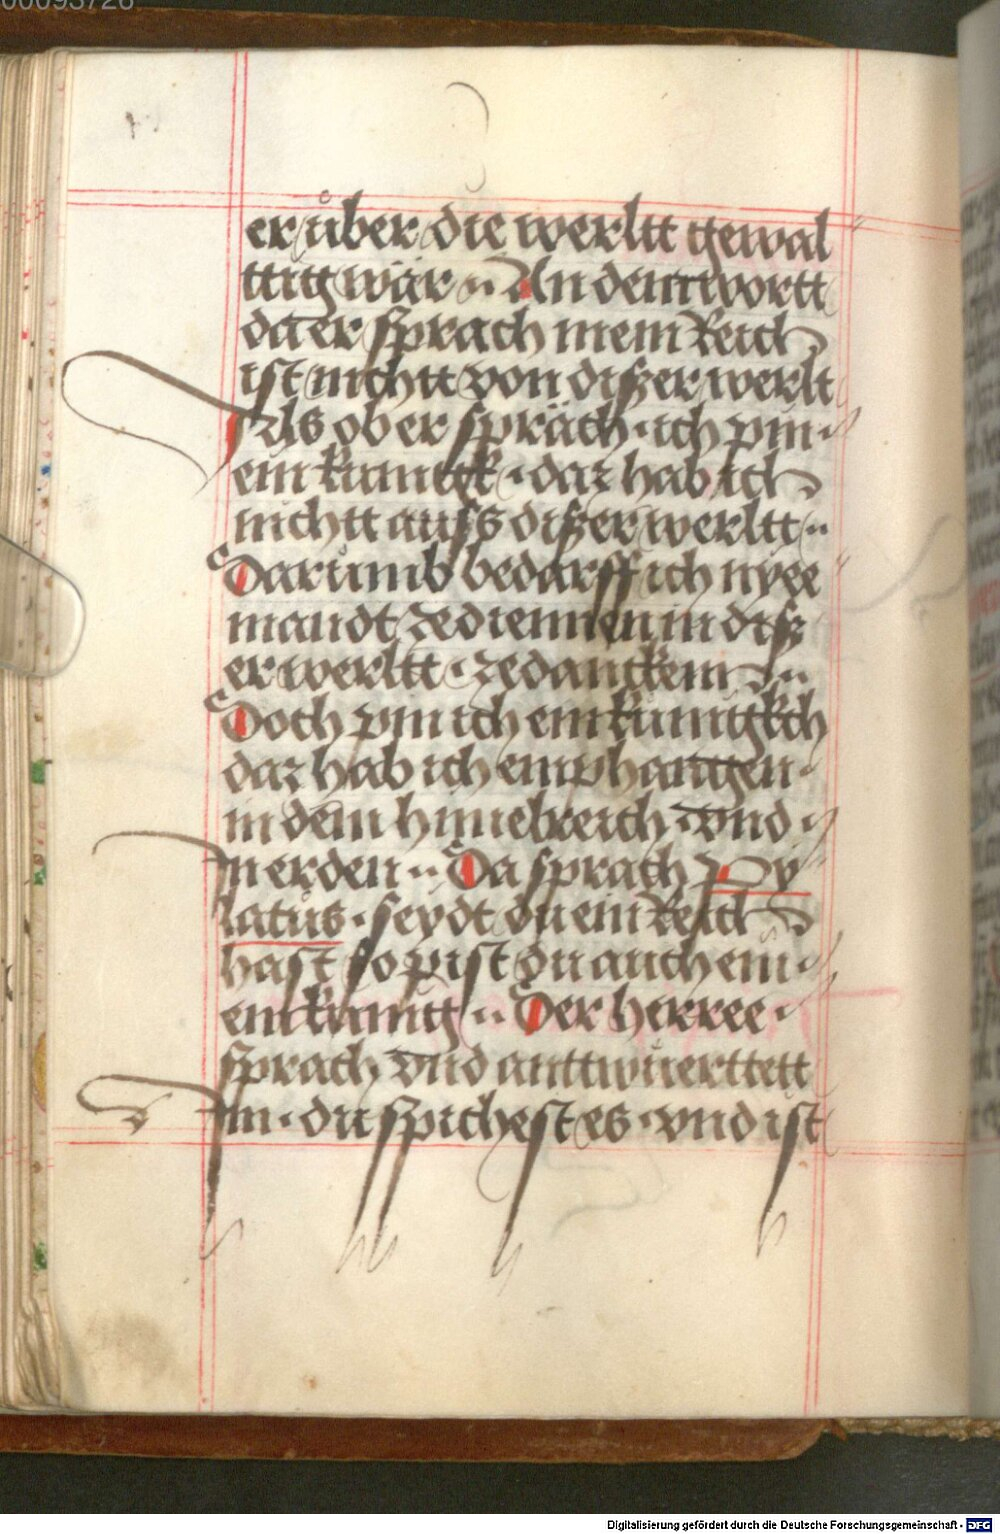 00093726
er über die werltt gewal
ttig wär ·· An dem wortt
da er sprach mein Reich
ist nichtt von diszer werlt
Als ob er spräch · ich pin ·
ein kunigk · daz hab ich
nichtt aufs diszer werltt ··
Darumb bedarff ich nyee
mandt ze diennen in disz
er werltt · ze danckem ··
Doch pin ich ein kunigkch
daz hab ich emphangen ·
in dem himebreich · vnd ·
in erden ·· Da sprach Py
latus · seydt du ein Reich
hast so pist du auch ein ·
ein kunig ·· Der herree ·
sprach vnd anttwuerttett
im · du spichest es · vnd ist
Digitalisierung gefördert durch die Deutsche Forschungsgemeinschaft - DFG